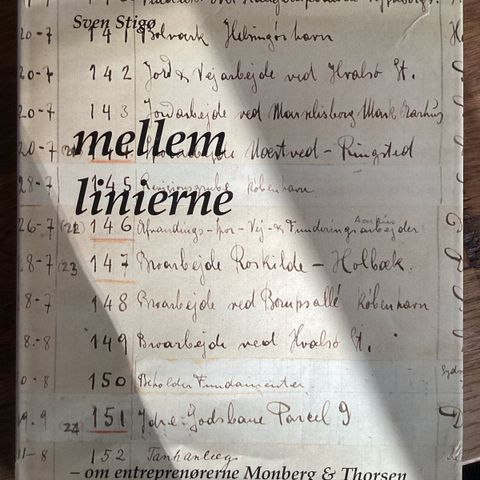 Sven Stigø
20-7 141 Bolværk Helsingør havn
142 Jord & Vejarbejde ved Hvalsø St.
20-7 143 Jordarbejde ved Marselisborg Mark Aarhus
mellem
20-7 Næstved – Ringsted
28-7 145 København
linierne
26-7 (22) 146 Afvandings- spor- Vej- & Funderingsarbejder
8-7 (23 147 Broarbejde Roskilde – Holbæk.
8-7 148 Broarbejde ved Borups allé København
8-8. 149 Broarbejde ved Hvalsø St.
0-8 150 Beholder Fundamenter
9.9 24 151 Ydre-Godsbane Parcel 9
11-8 152 Tankanlæg
– om entreprenørerne Monberg & Thorsen